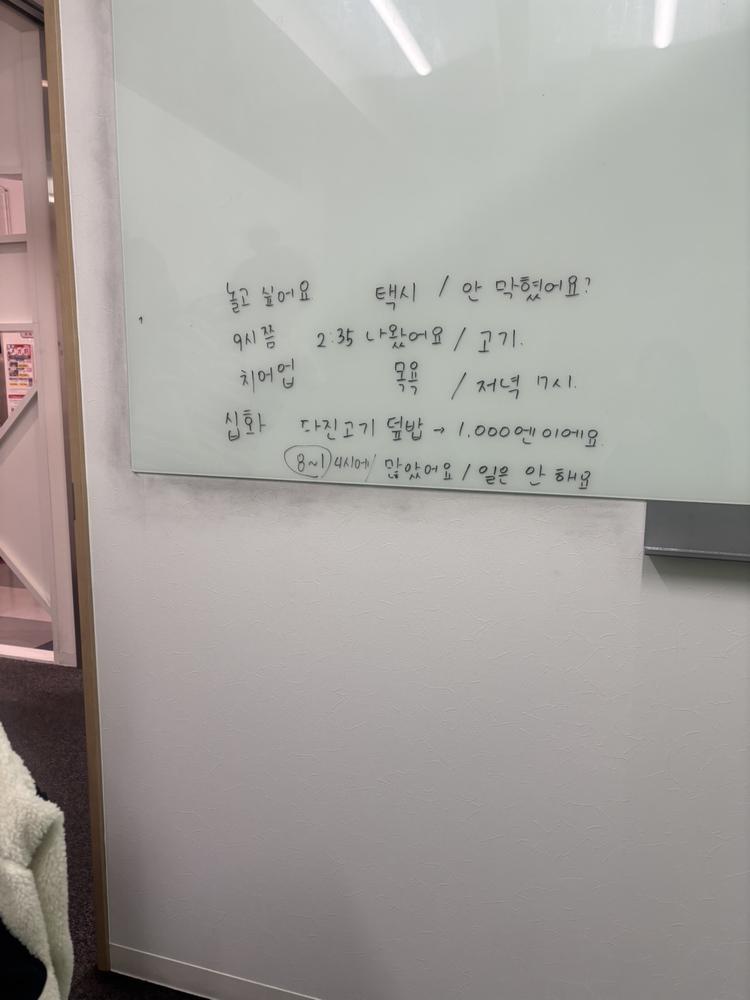 놀고 싶어요 택시 / 안 막혔어요?
9시쯤 2:35 나왔어요 / 고기.
치어업 목욕 / 저녁 7시.
십화 다진고기 덮밥 → 1.000엔이에요
8~1 4시에/ 많았어요 / 일은 안 해요